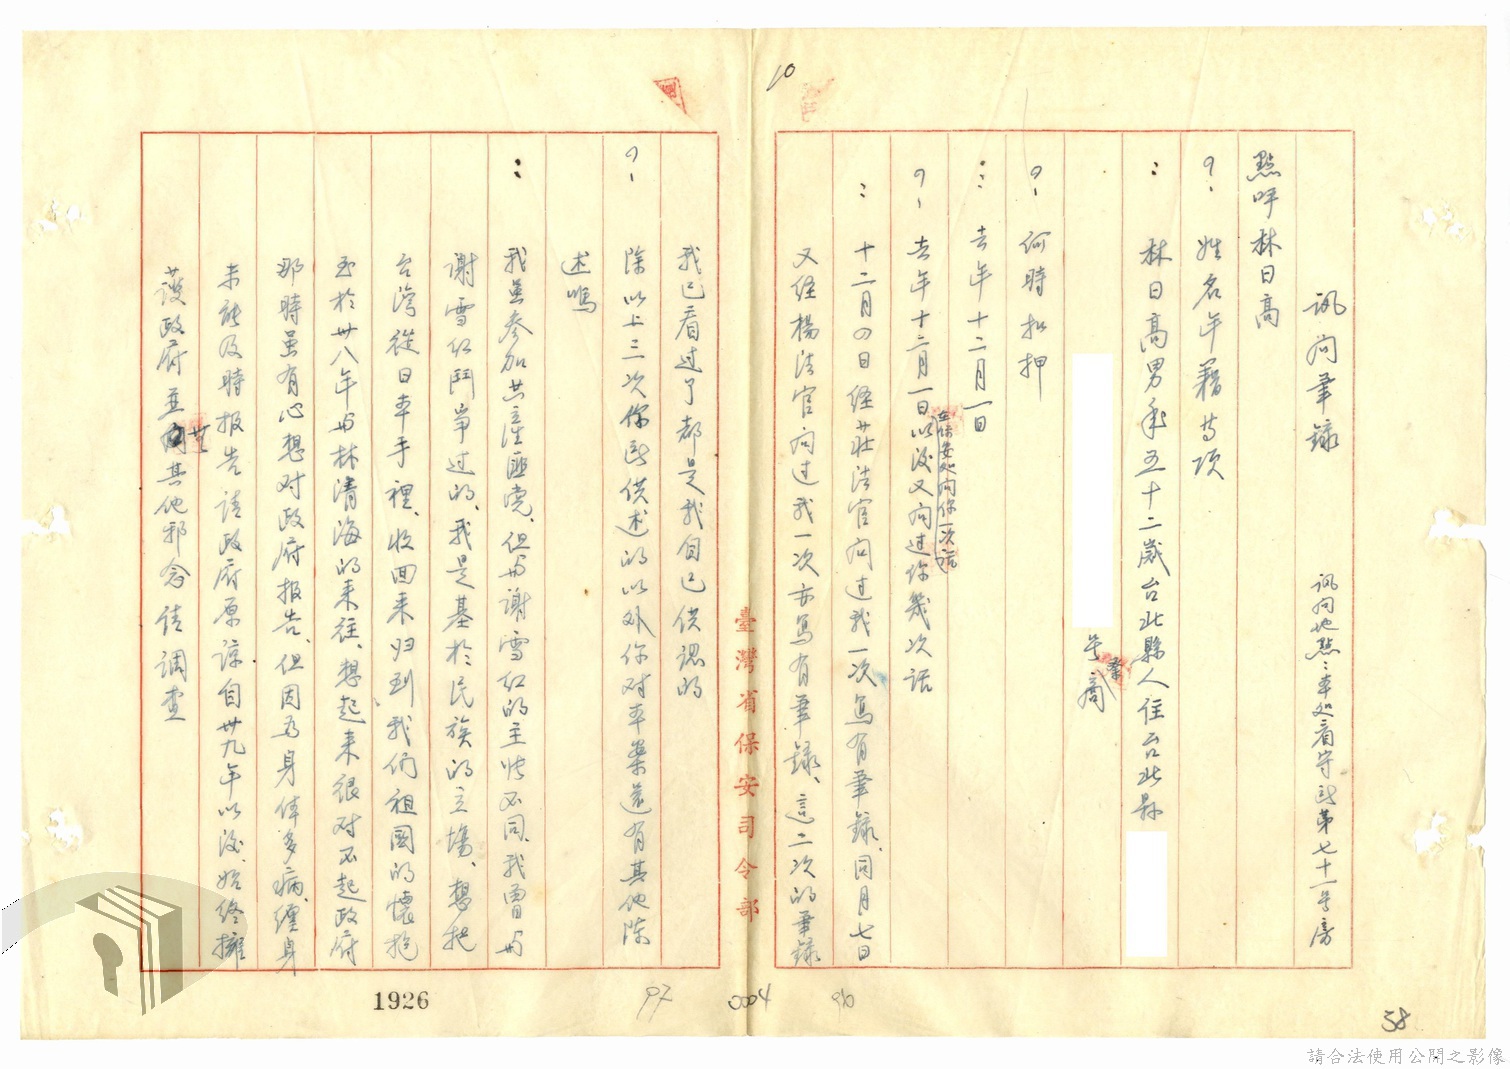 訊问筆錄
訊问地點：本处看守所第七十一号房
點呼林日高
？、姓名年籍等項
：林日高男年五十二歲台北縣人住台北縣
号商
？、何時扣押
：去年十二月一日
？、去年十二月一日在保安处问你一次話以後又问过你幾次话
：十二月四日经莊法官问过我一次寫有筆錄、同月七日
又经楊法官问过我一次亦寫有筆錄、這二次的筆錄
臺灣省保安司令部
我已看过了都是我自己供認的
？、除以上三次你所供述的以外你对本案還有其他陳
述嗎
：我虽參加共產匪党、但与谢雪红的主张不同、我曾与
谢雪红鬥爭过的、我是基於民族的立場、想把
台灣從日本手裡、收回来归到我们祖國的懷抱
至於卅八年与林清海的来往、想起来很对不起政府
那時虽有心想对政府报告、但因为身体多病、纏身
未能及時报告请政府原諒、自卅九年以後、始終擁
護政府並無其他邪念请調查
10
1926
97
0004
96
38
請合法使用公開之影像